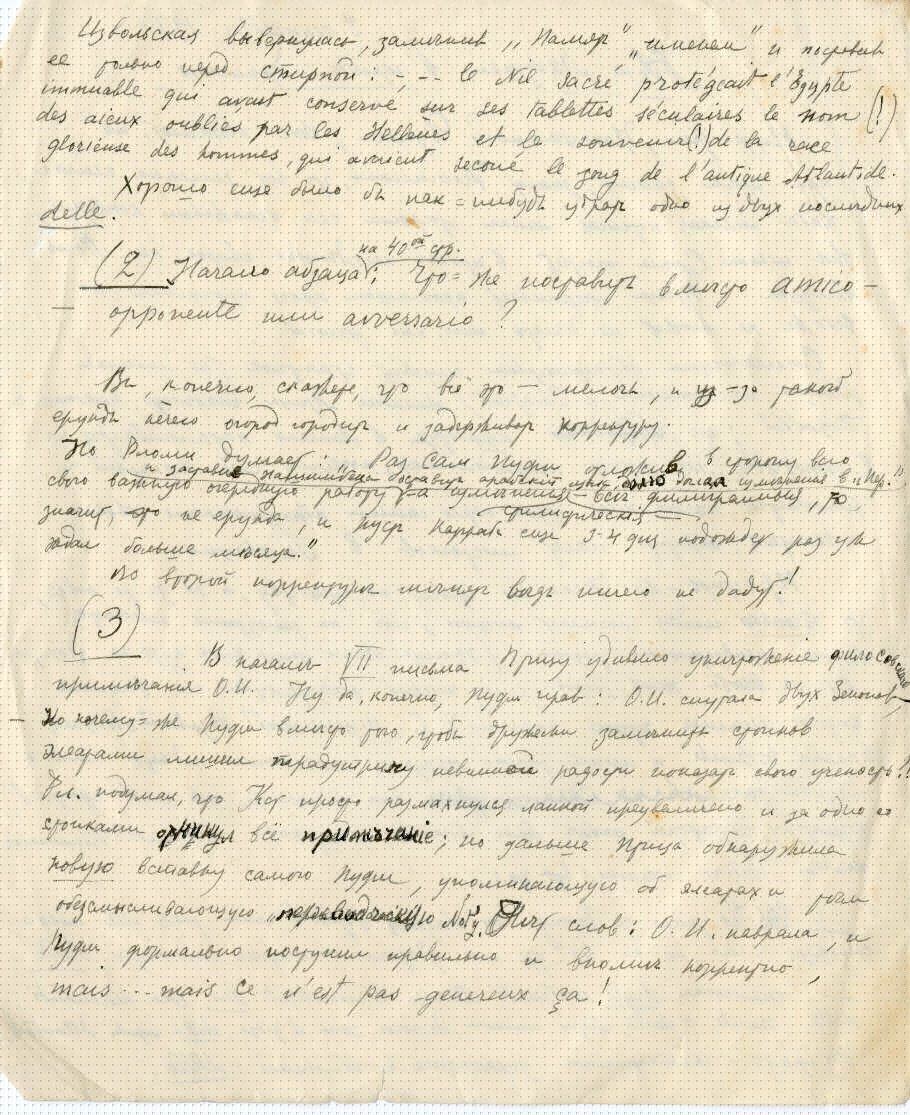 Извольская вывернулась, замѣнив „Память" „именем" и поставив
ее только перед стирпой: – , – – le Nil sacré protégeait l'Egypte
immuable qui avait conservé sur ses tablettes séculaires le nom (!)
des aïeux oubliés par les Hellènes et le souvenir (!) de la race
glorieuse des hommes, qui avaient secoué le joug de l'antique Atlantide.
Хорошо еще было бы как=нибудь убрать одно из двух послѣдних
delle.
(2) Начало абзаца на 40ой стр.: Что=же поставить вмѣсто amico –
– opponente или avversario?
Вы, конечно, скажете, что всё это – мелочи, и из-за такой
ерунды нечего огород городить и задерживать корректуру.
Но Фломи думает: „Раз сам Пудми отложив в сторону всю
свою важную очередную работу
значит, это не ерунда, и пусть Карраба еще 3-4 дня подождет раз уж
ждал больше мѣсяца."
Во второй корректурѣ мѣнять вѣдь ничего не дадут!
(3)
В началѣ VII письма Птицу удивило уничтожение философского
примѣчания О.И. Ну да, конечно, Пудми прав: О.И. спутала двух Зенонов,
– Но почему=же Пудми вмѣсто того, чтобы дружески замѣнить стоиков
элеатами лишил традуттрину невинной радости показать свою ученость?!
Фл. подумал, что Кот просто размахнулся лапкой преувеличено и за одно со
стоиками откинул всё примѣчание; но дальше Птица обнаружила
новую вставку самого Пудми, упоминающую об элеатах и
обезсмысливающую „переводческую
слов: О. И. наврала, и
Пудми формально поступил правильно и вполнѣ корректно,
mais ... mais ce n'est pas genereux ça!